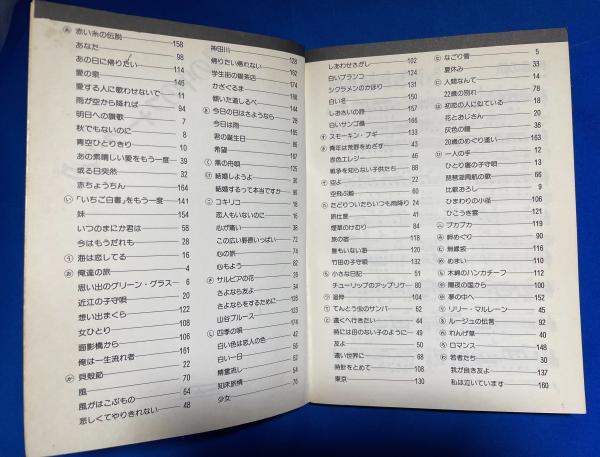 あ 赤い糸の伝説 158
あなた 98
あの日に帰りたい 114
愛の泉 146
愛する人に歌わせないで 11
雨が空から降れば 94
明日への讃歌 7
秋でもないのに 8
青空ひとりきり 10
あの素晴しい愛をもう一度 39
或る日突然 32
赤ちょうちん 164
い 「いちご白書」をもう一度 141
妹 154
いつのまにか君は 58
今はもうだれも 28
う 海は恋してる 16
お 俺達の旅 4
思い出のグリーン・グラス 6
近江の子守唄 20
想い出まくら 122
女ひとり 108
面影橋から 106
俺は一生流れ者 161
か 貝殻節 22
風 70
風がはこぶもの 54
悲しくてやりきれない 48
神田川 128
帰りたい帰れない 162
学生街の喫茶店 174
かざぐるま 166
傾いた道しるべ 144
き 今日の日はさようなら 78
今日は雨
君の誕生日
希望 167
く 黒の舟唄 125
け 結婚しようよ 30
結婚するって本当ですか 96
こ コキリコ
恋人もいないのに 34
心が痛い 38
この広い野原いっぱい 72
心の旅
心もよう 82
さ サルビアの花
さよなら友よ
さよならをするために 126
山谷ブルース
し 四季の唄 42
白い色は恋人の色
白い一日
精霊流し
知床旅情
少女 76
しあわせさがし 102
白いブランコ 24
シクラメンのかほり 131
白い冬
しおさいの詩 157
白いサンゴ礁 66
す スモーキン・ブギ 63
せ 青年は荒野をめざす 43
赤色エレジー 60
戦争を知らない子供たち 88
そ 空よ 22
空飛ぶ鯨 60
た たどりついたらいつも雨降り 24
旅仕度 41
煙草のけむり 84
旅の宿 118
誰もいない海 120
竹田の子守唄 120
ち 小さな日記 51
チューリップのアップリケ 80
つ 追伸 104
て てんとう虫のサンバ 62
と 遠くへ行きたい 44
時には母のない子のように 49
友よ 50
遠い世界に 68
時計をとめて 108
東京 130
な なごり雪 5
夏休み 33
に 人間なんて 14
22歳の別れ 78
は 初恋の人に似ている 18
花とおじさん 20
灰色の瞳 36
20歳のめぐり逢い 163
ひ 一人の手 12
ひとり寝の子守唄 13
琵琶湖周航の歌 66
比叡おろし 9
ひまわりの小径 106
ひこうき雲 121
ふ プカプカ 119
み 岬めぐり 90
む 無縁坂 111
め めまい 110
も 木綿のハンカチーフ 112
や 闇夜の国から 100
ゆ 夢の中へ 152
り リリー・マルレーン 45
る ルージュの伝言 92
れ れんげ草 40
ろ ロマンス 148
わ 若者たち 30
我が良き友よ 137
私は泣いています 160